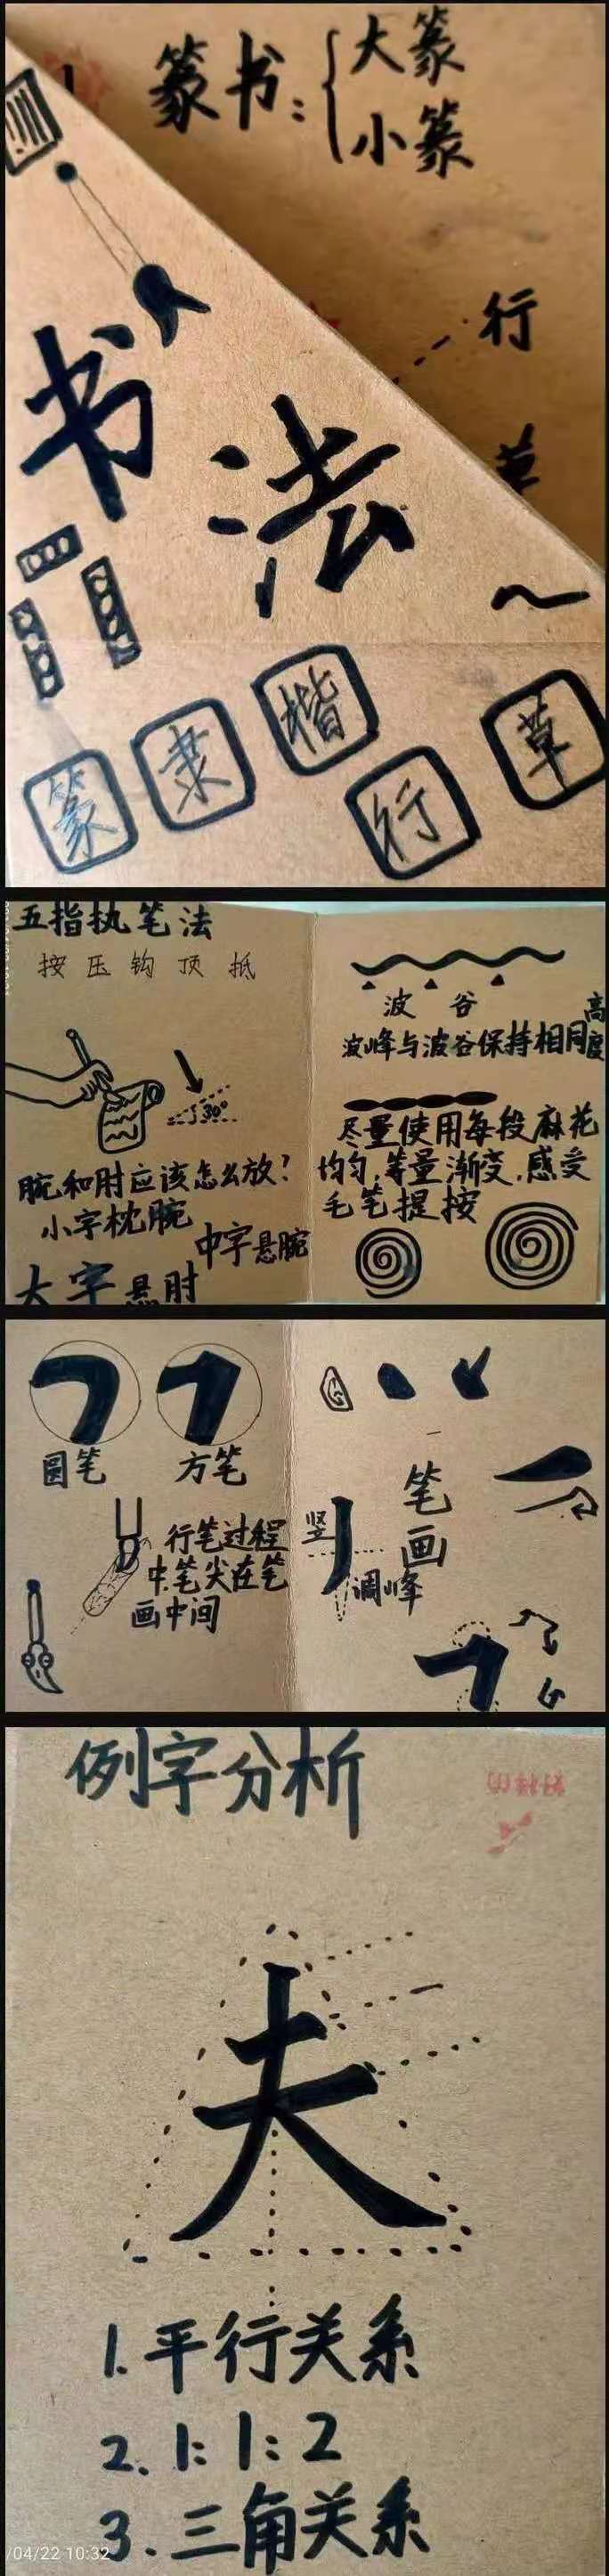 篆书：大篆
小篆
行
草
书法
篆
隶
楷
行
草
五指执笔法
按 压 钩 顶 抵
30°
腕和肘应该怎么放?
小字枕腕
中字悬腕
大字悬肘
波 谷
波峰与波谷保持相同高度
尽量使用每段麻花
均匀,等量渐变,感受
毛笔提按
圆笔
方笔
行笔过程
中.笔尖在笔
画中间
笔画
竖
调峰
例字分析
夫
1.平行关系
2.1:1:2
3.三角关系
/04/22 10:32